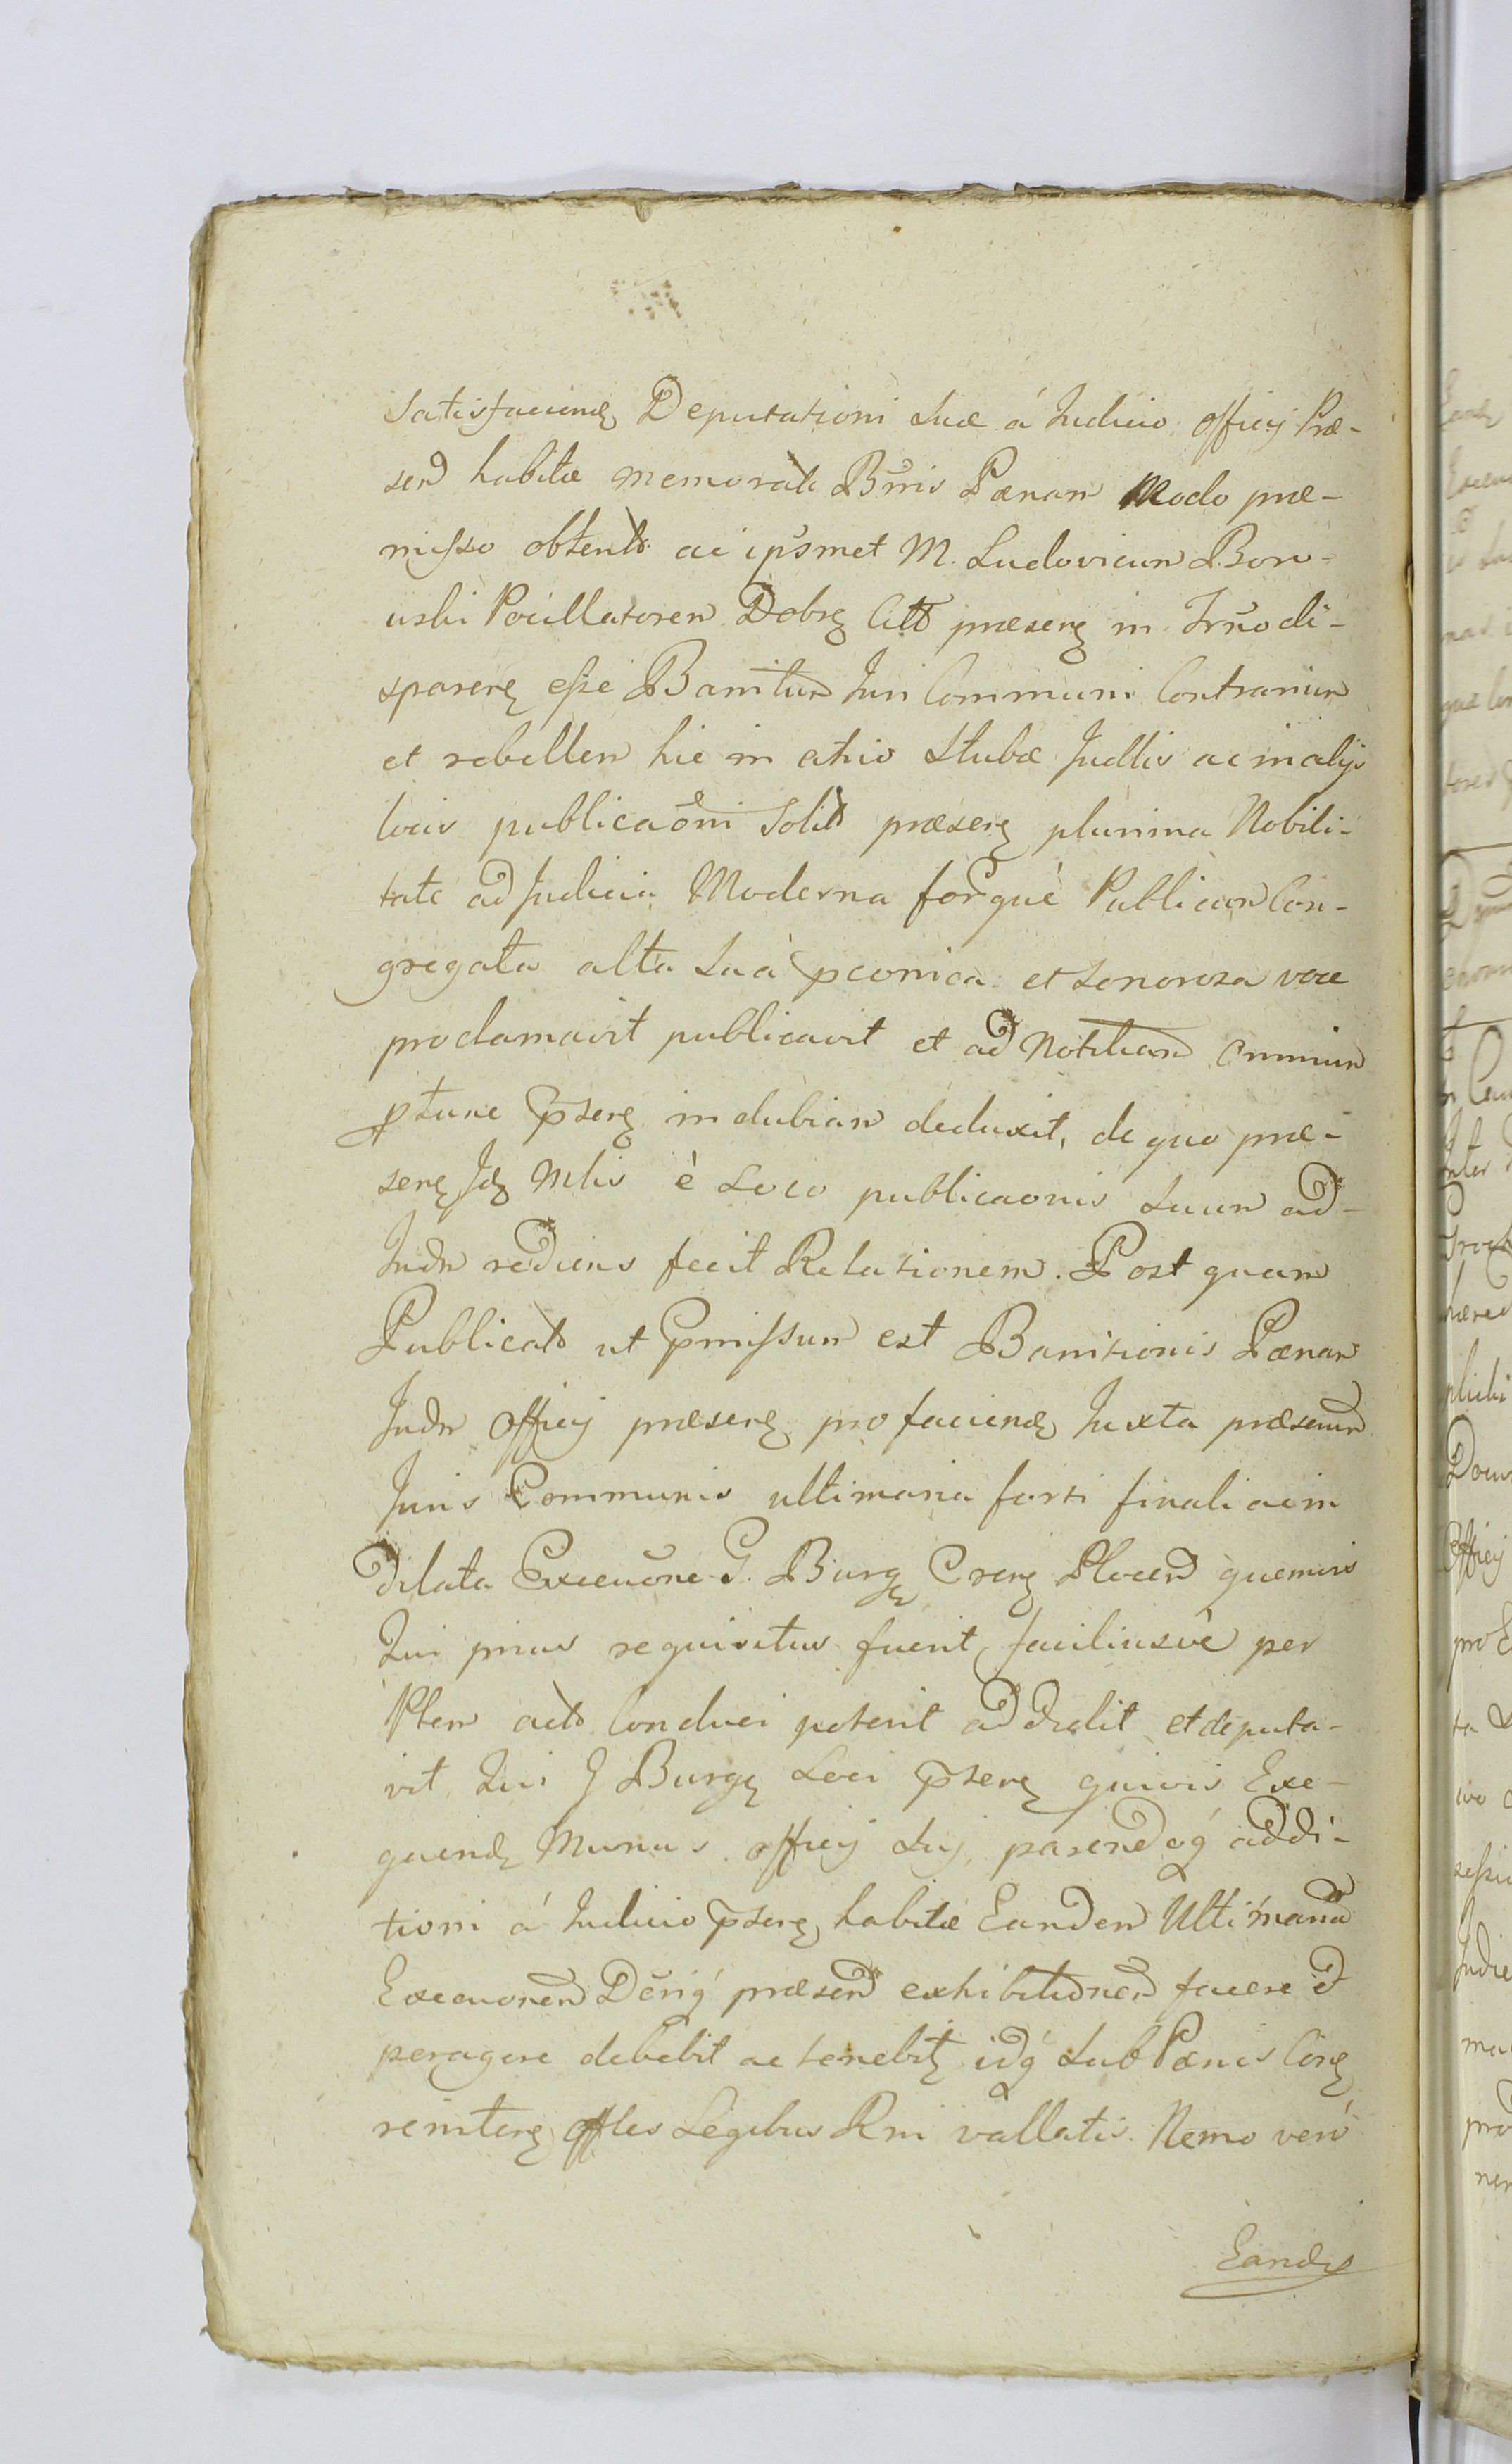 Satisfaciendꝫ Deputationi Suæ á Judicio Officij Præ-
send habitæ memorati Bnis Pænam Modo præ-
misso obtentã ac ipsmet M. Ludovicum Boro-
uski Pocillatorem Dobrꝫ Citt præserꝫ in Trno di-
sparerꝫ esse Banitum Juri Communi Contrarium
et rebellem hic in atrio Stubæ Judlis ac in alijs
locis publicaoni solitꝭ præserꝫ plurima Nobili-
tate ad Judicia Moderna forqué Publicum Con-
gregata alta Suà pconica et Sonorosa voce
proclamavit publicavit et ad Notitiam omnium
ptunc pserꝫ indubiam deduxit, de quo præ-
serꝫ Jdꝫ Mlis è Loco publicaonis Suum ad-
Judm rediens fecit Relationem. Post quam
Publicatã ut pmissum est Banitionis Pænam
Judm Officij præserꝫ pro faciendꝫ Juxta præsenm
Juris Communis ultimaria forti finali ac in
dilata Execuone G. Burgꝫ Crenꝫ Plocen quemvis
Qui prius requisitus fuerit, faciliusvè per
Ptem actã Conduci poterit addidit et deputa-
vit Qui G Burgꝫ Loci pserꝫ quivis Exe-
quendꝫ Munus officij Sui, parendoq́ additi-
tioni á Judicio pserꝫ habitæ Eandem Ultimariã
Execuonem Deniq́ præsend exhibitionem facere &
peragere debebit ac tenebitꝫ idq́ Sub Pænis Conꝫ
renitenꝫ offles Legibus Rni vallatis. Nemo verò
Eandꝫ